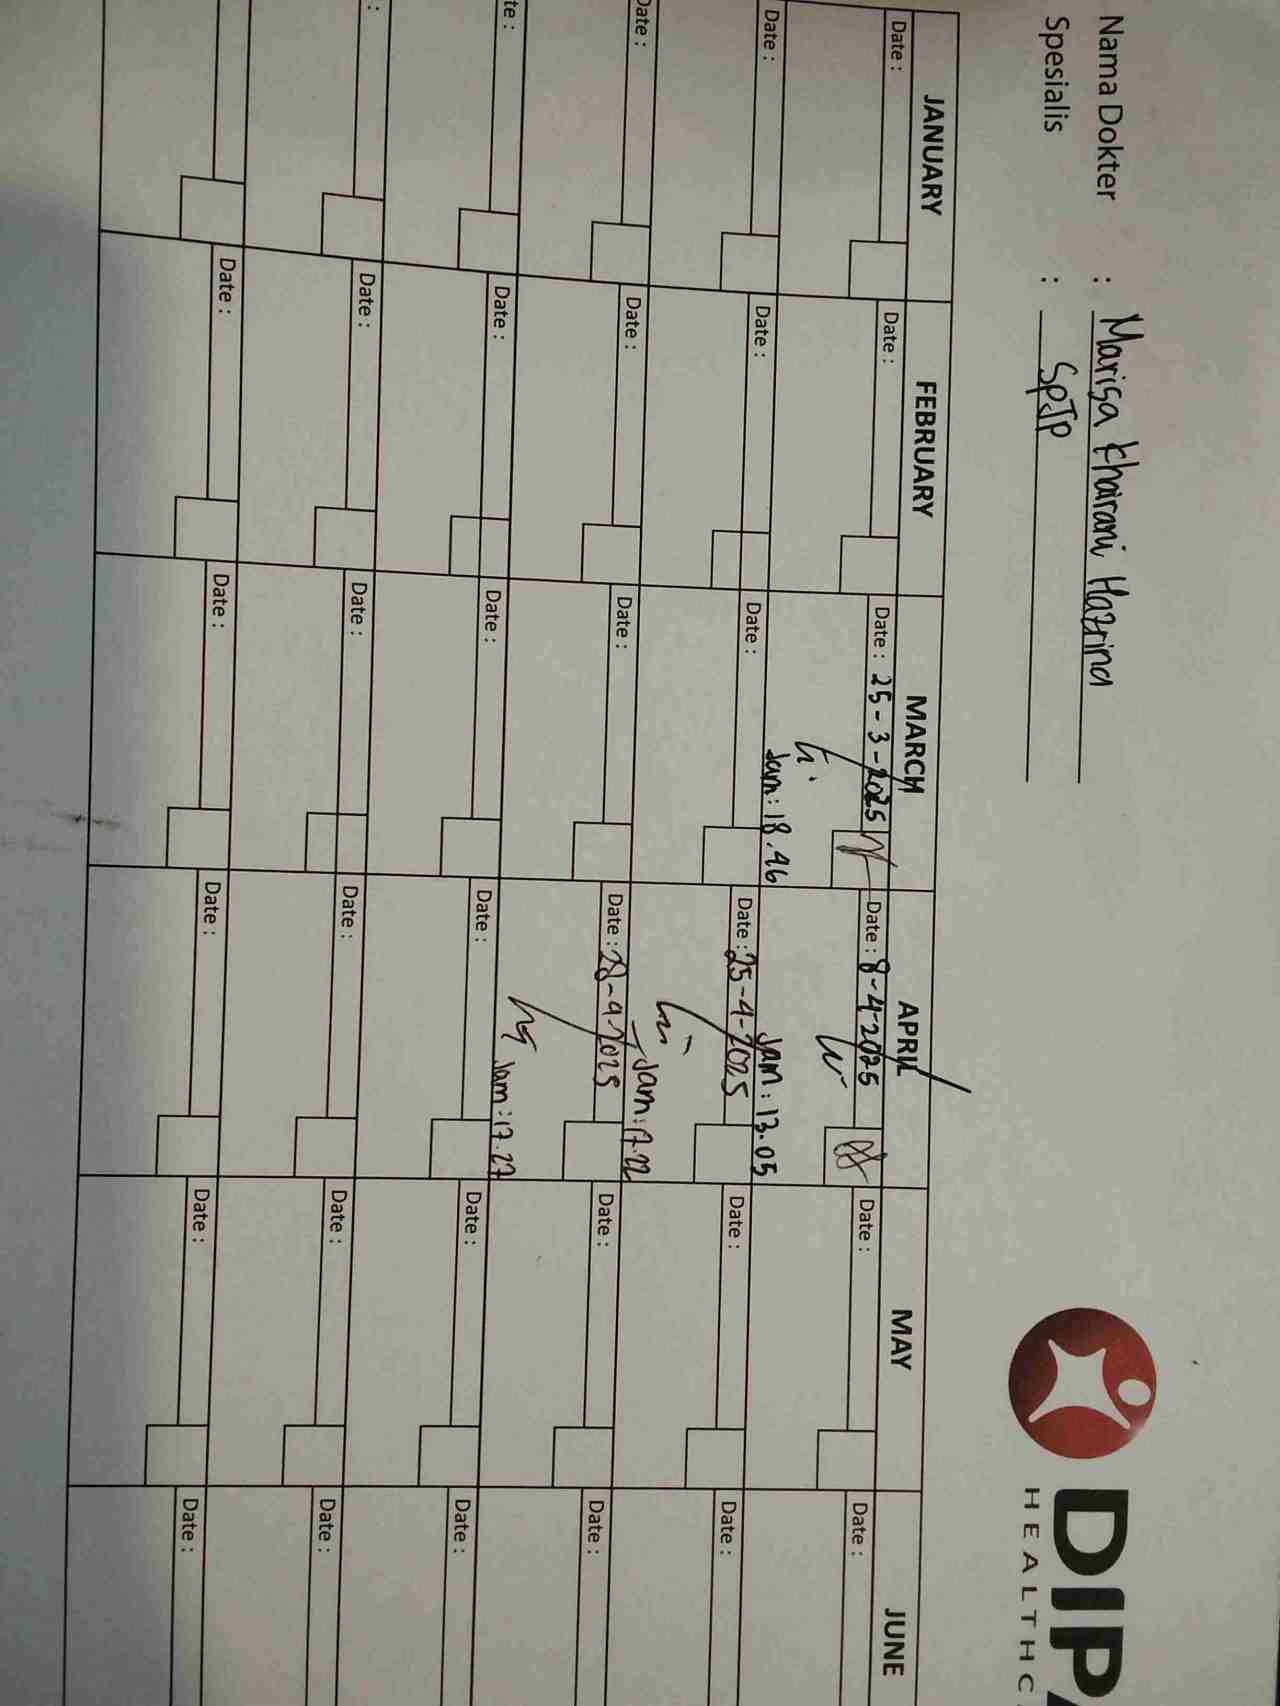 DIPA
HEALTHC
Nama Dokter : Marisa Khairani Hazrina
Spesialis : SpJP
JANUARY FEBRUARY MARCH APRIL MAY JUNE
Date : Date : Date : 25-3-2025 Date : 8-4-2025 Date : Date :
Jam : 18.46 Jam : 13.05
Date : Date : Date : Date : 25-4-2025 Date : Date :
Jam : 17.22
Date : Date : Date : Date : 28-4-2025 Date : Date :
Jam : 17.27
te : Date : Date : Date : Date : Date :
: Date : Date : Date : Date : Date :
Date : Date : Date : Date : Date :